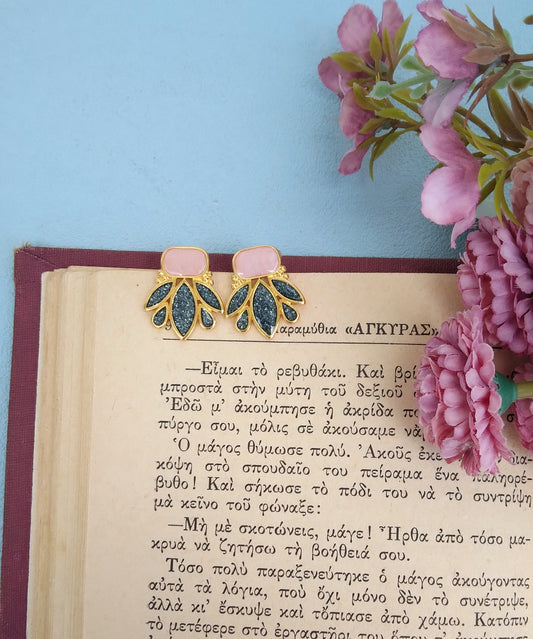 αραμύθια «ΑΓΚΥΡΑΣ»
—Εἶμαι τὸ ρεβυθάκι. Καὶ βρί
μπροστὰ στὴν μύτη τοῦ δεξιοῦ
Ἐδῶ μ' ἀκούμπησε ἡ ἀκρίδα πο
πύργο σου, μόλις σὲ ἀκούσαμε νὰ
Ὁ μάγος θύμωσε πολύ. Ἀκοῦς ἐκε
κόψη στὸ σπουδαῖο του πείραμα ἕνα παληορέ-
βυθο! Καὶ σήκωσε τὸ πόδι του νὰ τὸ συντρίψη
μὰ κεῖνο τοῦ φώναξε:
—Μὴ μὲ σκοτώνεις, μάγε! Ἦρθα ἀπὸ τόσο μα-
κρυὰ νὰ ζητήσω τὴ βοήθειά σου.
Τόσο πολὺ παραξενεύτηκε ὁ μάγος ἀκούγοντας
αὐτὰ τὰ λόγια, ποὺ ὄχι μόνο δὲν τὸ συνέτριψε,
ἀλλὰ κι' ἔσκυψε καὶ τὄπιασε ἀπὸ χάμω. Κατόπιν
τὸ μετέφερε στὸ ἐργαστήρι του